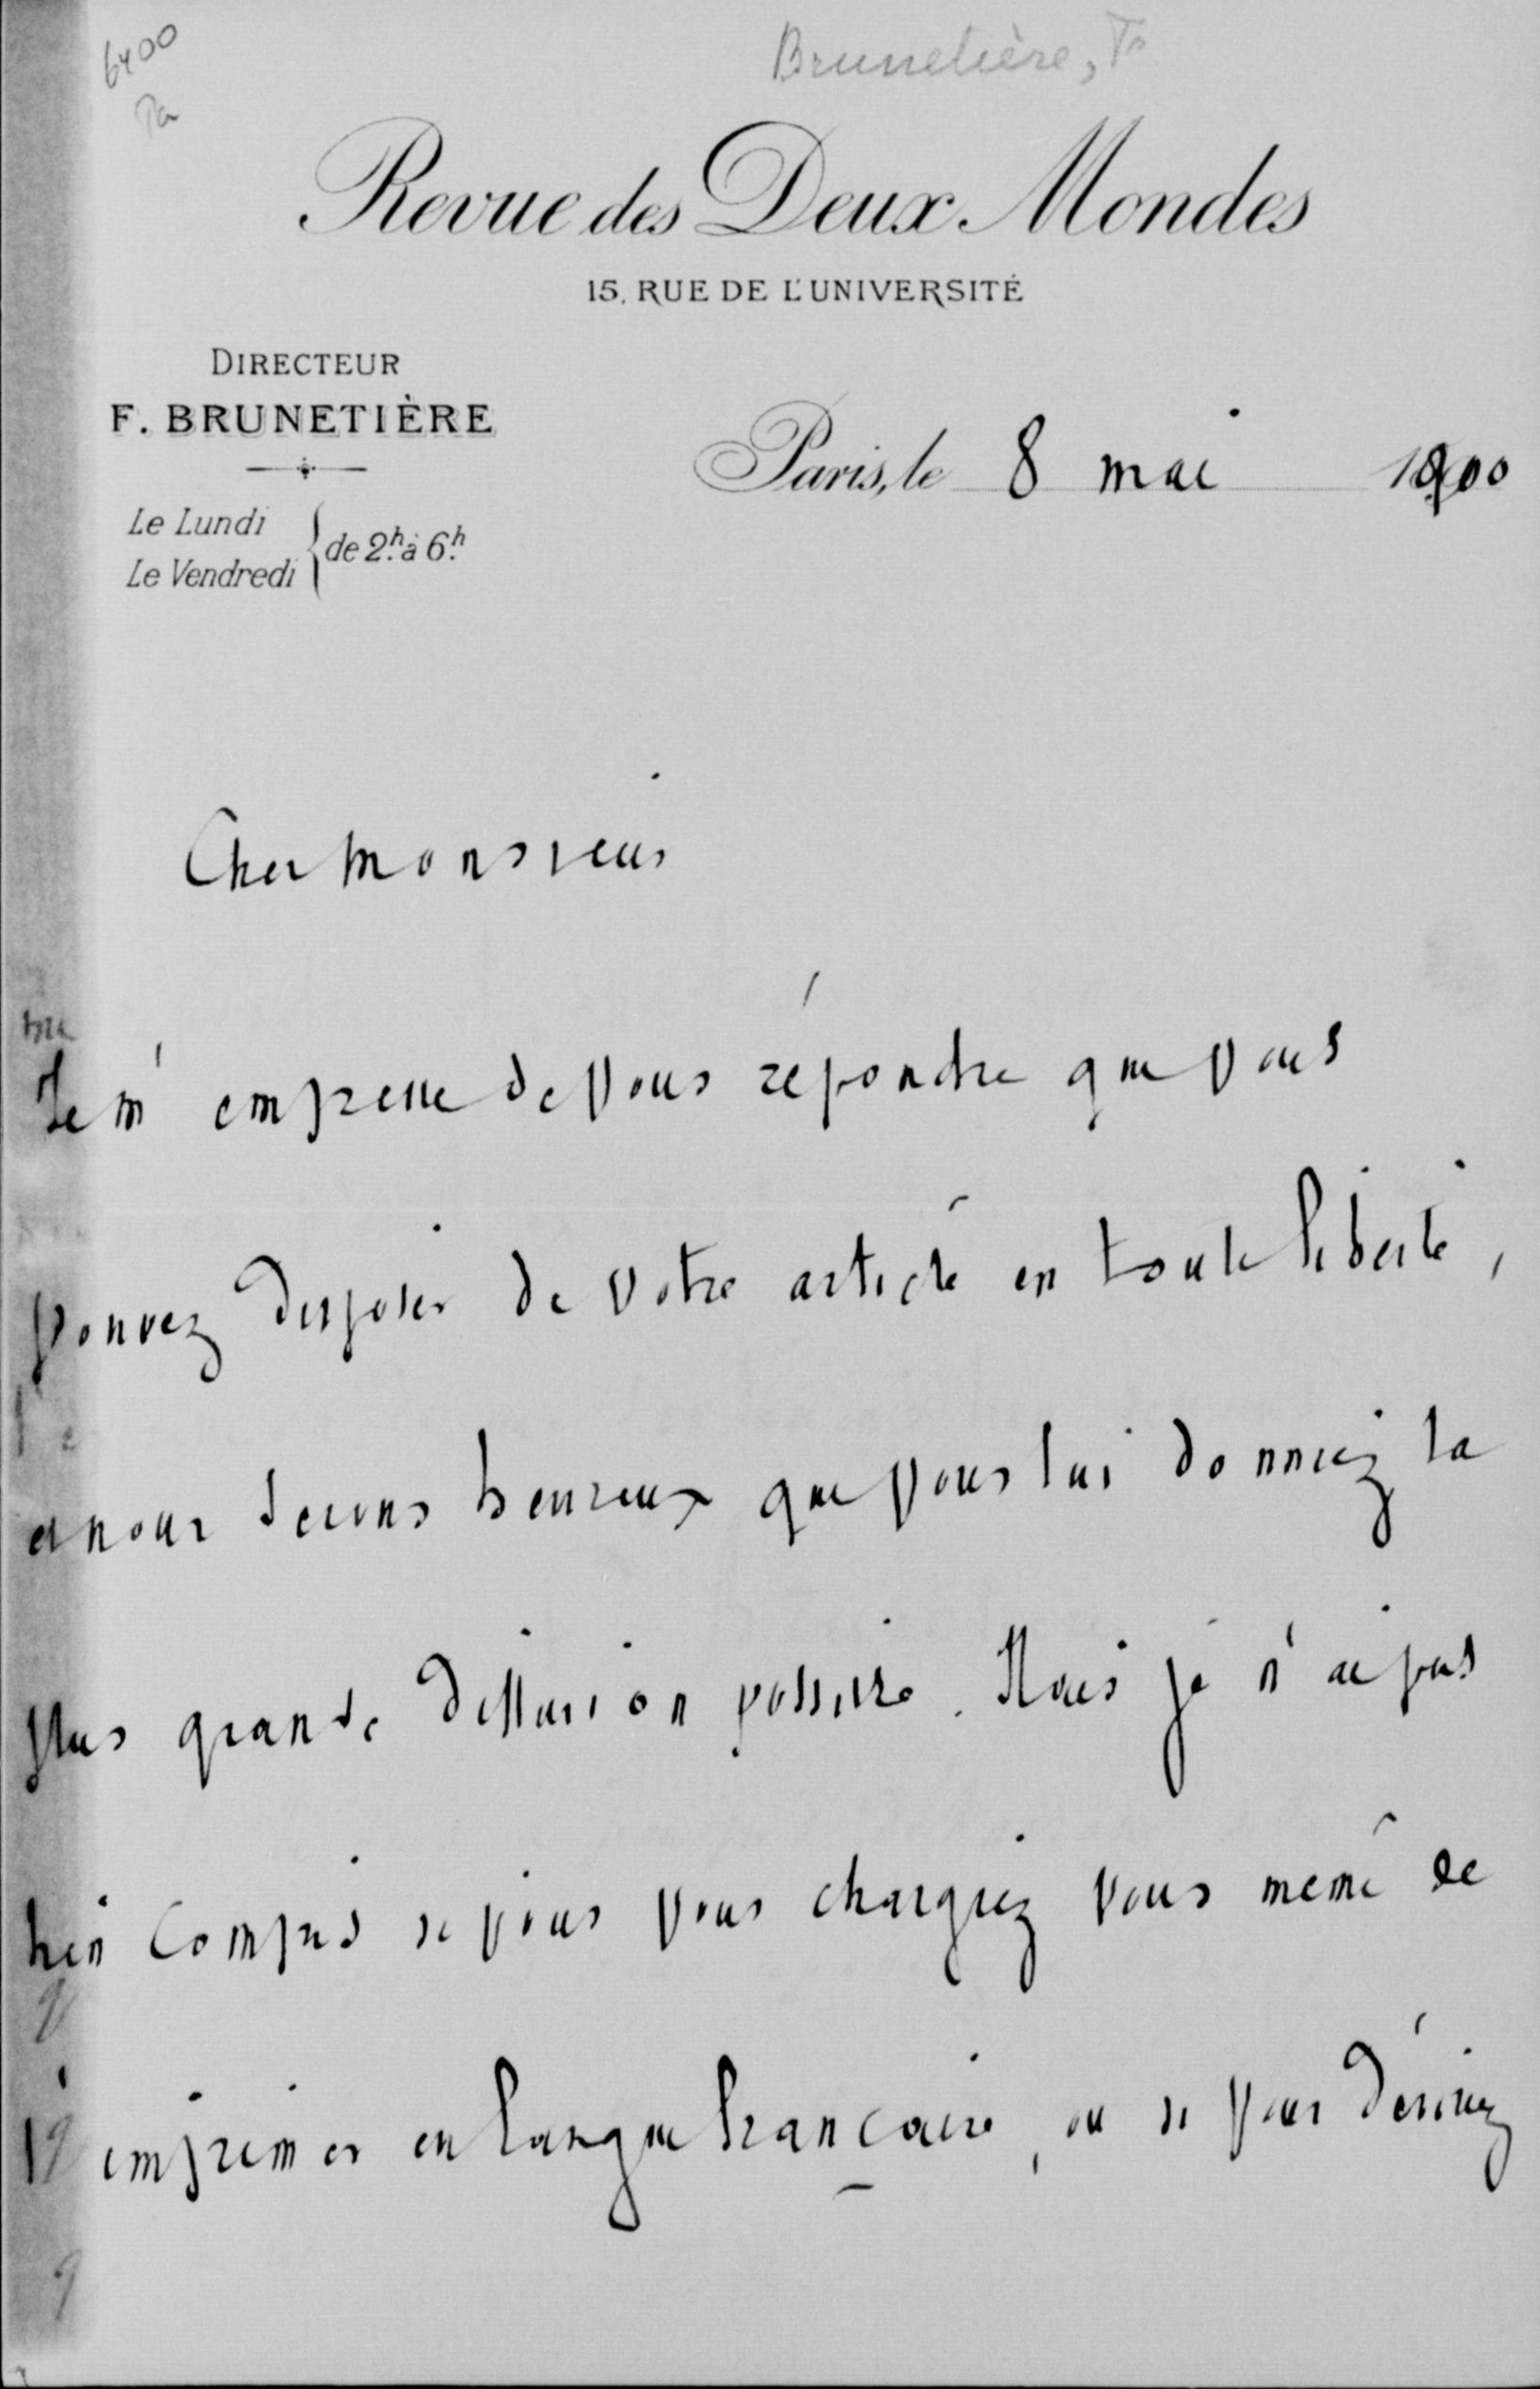 6400
Brunetière, F.
Revue des Deux Mondes
15, RUE DE L'UNIVERSITÉ
DIRECTEUR
F. BRUNETIÈRE
Paris, le 8 mai 1900
Le Lundi
Le Vendredi
de 2h. à 6h.
Cher Monsieur
Je m'empresse de vous répondre que vous
pouvez disposer de votre article en toute liberté,
et nous serons heureux que vous lui donniez la
plus grande diffusion possible. Mais je n'ai pas
bien compris si vous vous chargiez vous même de
l'imprimer en langue française, ou si vous désiriez